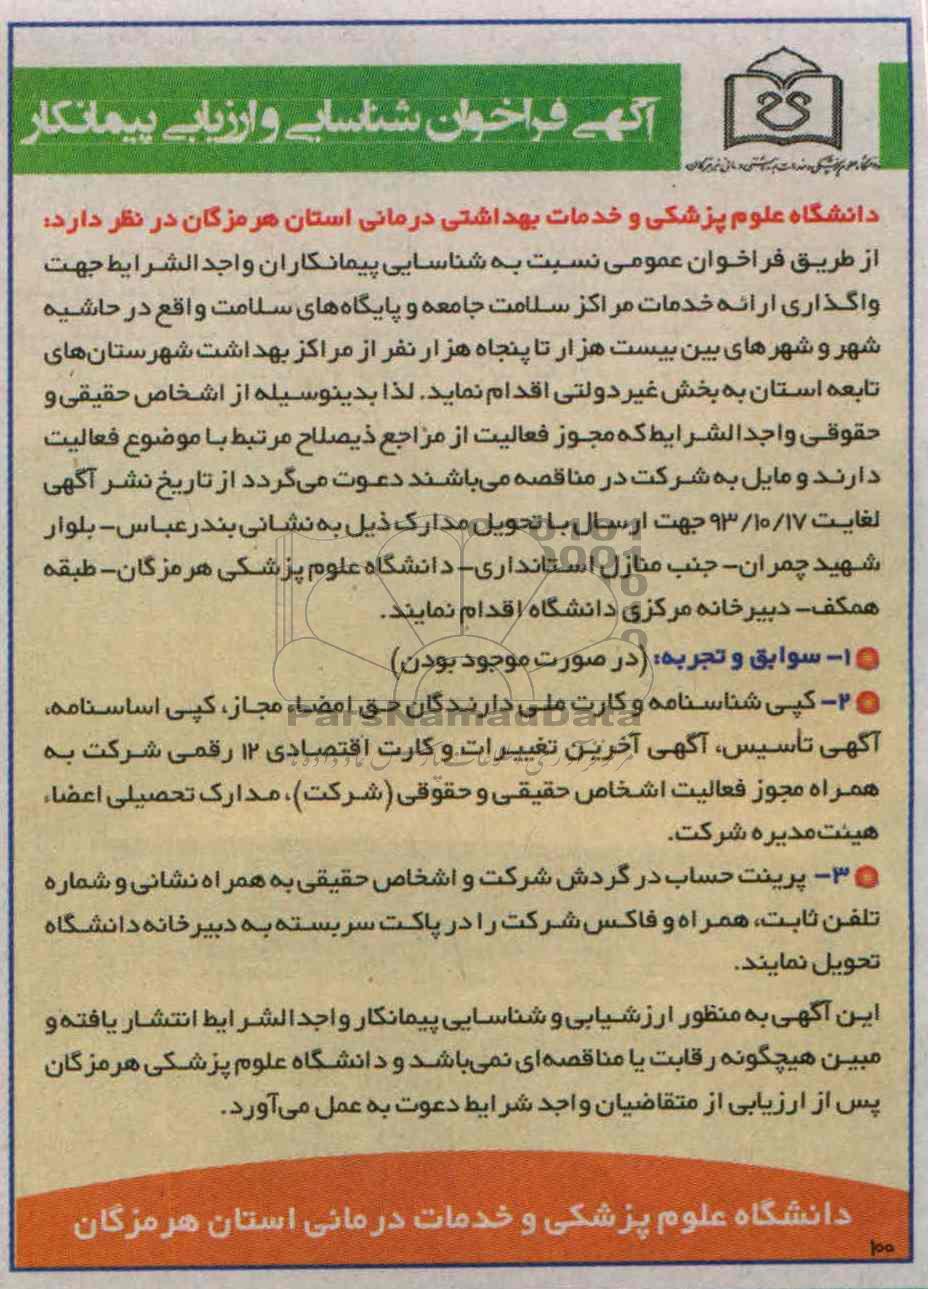 آگهی فراخوان شناسایی و ارزیابی پیمانکار
دانشگاه علوم پزشکی و خدمات بهداشتی درمانی استان هرمزگان در نظر دارد:
از طریق فراخوان عمومی نسبت به شناسایی پیمانکاران واجدالشرایط جهت
واگذاری ارائه خدمات مراکز سلامت جامعه و پایگاه‌های سلامت واقع در حاشیه
شهر و شهرهای بین بیست هزار تا پنجاه هزار نفر از مراکز بهداشت شهرستان‌های
تابعه استان به بخش غیردولتی اقدام نماید. لذا بدینوسیله از اشخاص حقیقی و
حقوقی واجدالشرایط که مجوز فعالیت از مراجع ذیصلاح مرتبط با موضوع فعالیت
دارند و مایل به شرکت در مناقصه می‌باشند دعوت می‌گردد از تاریخ نشر آگهی
لغایت ۹۳/۱۰/۱۷ جهت ارسال یا تحویل مدارک ذیل به نشانی بندرعباس- بلوار
شهید چمران- جنب منازل استانداری- دانشگاه علوم پزشکی هرمزگان- طبقه
همکف- دبیرخانه مرکزی دانشگاه اقدام نمایند.
۱- سوابق و تجربه: (در صورت موجود بودن)
۲- کپی شناسنامه و کارت ملی دارندگان حق امضاء مجاز، کپی اساسنامه،
ParsNamadData
آگهی تأسیس، آگهی آخرین تغییرات و کارت اقتصادی ۱۲ رقمی شرکت به
همراه مجوز فعالیت اشخاص حقیقی و حقوقی (شرکت)، مدارک تحصیلی اعضاء
هیئت‌مدیره شرکت.
۳- پرینت حساب در گردش شرکت و اشخاص حقیقی به همراه نشانی و شماره
تلفن ثابت، همراه و فاکس شرکت را در پاکت سربسته به دبیرخانه دانشگاه
تحویل نمایند.
این آگهی به منظور ارزشیابی و شناسایی پیمانکار واجدالشرایط انتشار یافته و
مبین هیچگونه رقابت یا مناقصه‌ای نمی‌باشد و دانشگاه علوم پزشکی هرمزگان
پس از ارزیابی از متقاضیان واجد شرایط دعوت به عمل می‌آورد.
دانشگاه علوم پزشکی و خدمات درمانی استان هرمزگان
۱۰۰